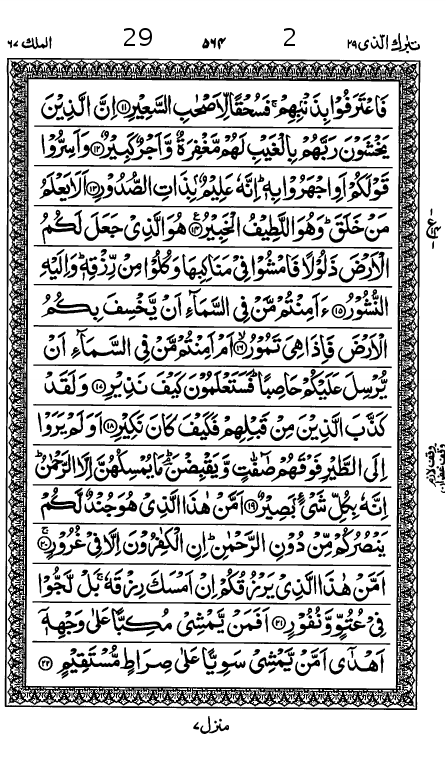 تبارك الذی ۲۹ 2 ۵۶۴ 29 الملك ۶۷
فَاعْتَرَفُوْا بِذَنْۢبِهِمْ ۚ فَسُحْقًا لِّاَصْحٰبِ السَّعِيْرِ ﴿۱۱﴾ اِنَّ الَّذِيْنَ
يَخْشَوْنَ رَبَّهُمْ بِالْغَيْبِ لَهُمْ مَّغْفِرَةٌ وَّاَجْرٌ كَبِيْرٌ ﴿۱۲﴾ وَاَسِرُّوْا
قَوْلَكُمْ اَوِ اجْهَرُوْا بِهٖ ؕ اِنَّهٗ عَلِيْمٌۢ بِذَاتِ الصُّدُوْرِ ﴿۱۳﴾ اَلَا يَعْلَمُ
مَنْ خَلَقَ ؕ وَهُوَ اللَّطِيْفُ الْخَبِيْرُ ﴿۱۴﴾ هُوَ الَّذِيْ جَعَلَ لَكُمُ
الْاَرْضَ ذَلُوْلًا فَامْشُوْا فِيْ مَنَاكِبِهَا وَكُلُوْا مِنْ رِّزْقِهٖ ؕ وَاِلَيْهِ
النُّشُوْرُ ﴿۱۵﴾ ءَاَمِنْتُمْ مَّنْ فِي السَّمَآءِ اَنْ يَّخْسِفَ بِكُمُ
الْاَرْضَ فَاِذَا هِيَ تَمُوْرُ ﴿۱۶﴾ اَمْ اَمِنْتُمْ مَّنْ فِي السَّمَآءِ اَنْ
يُّرْسِلَ عَلَيْكُمْ حَاصِبًا ؕ فَسَتَعْلَمُوْنَ كَيْفَ نَذِيْرِ ﴿۱۷﴾ وَلَقَدْ
كَذَّبَ الَّذِيْنَ مِنْ قَبْلِهِمْ فَكَيْفَ كَانَ نَكِيْرِ ﴿۱۸﴾ اَوَلَمْ يَرَوْا
اِلَى الطَّيْرِ فَوْقَهُمْ صٰٓفّٰتٍ وَّيَقْبِضْنَ ؕ مَا يُمْسِكُهُنَّ اِلَّا الرَّحْمٰنُ ؕ
اِنَّهٗ بِكُلِّ شَيْءٍۢ بَصِيْرٌ ﴿۱۹﴾ اَمَّنْ هٰذَا الَّذِيْ هُوَ جُنْدٌ لَّكُمْ
يَنْصُرُكُمْ مِّنْ دُوْنِ الرَّحْمٰنِ ؕ اِنِ الْكٰفِرُوْنَ اِلَّا فِيْ غُرُوْرٍ ﴿۲۰﴾
اَمَّنْ هٰذَا الَّذِيْ يَرْزُقُكُمْ اِنْ اَمْسَكَ رِزْقَهٗ ۚ بَلْ لَّجُّوْا
فِيْ عُتُوٍّ وَّنُفُوْرٍ ﴿۲۱﴾ اَفَمَنْ يَّمْشِيْ مُكِبًّا عَلٰى وَجْهِهٖٓ
اَهْدٰٓى اَمَّنْ يَّمْشِيْ سَوِيًّا عَلٰى صِرَاطٍ مُّسْتَقِيْمٍ ﴿۲۲﴾
منزل ۷